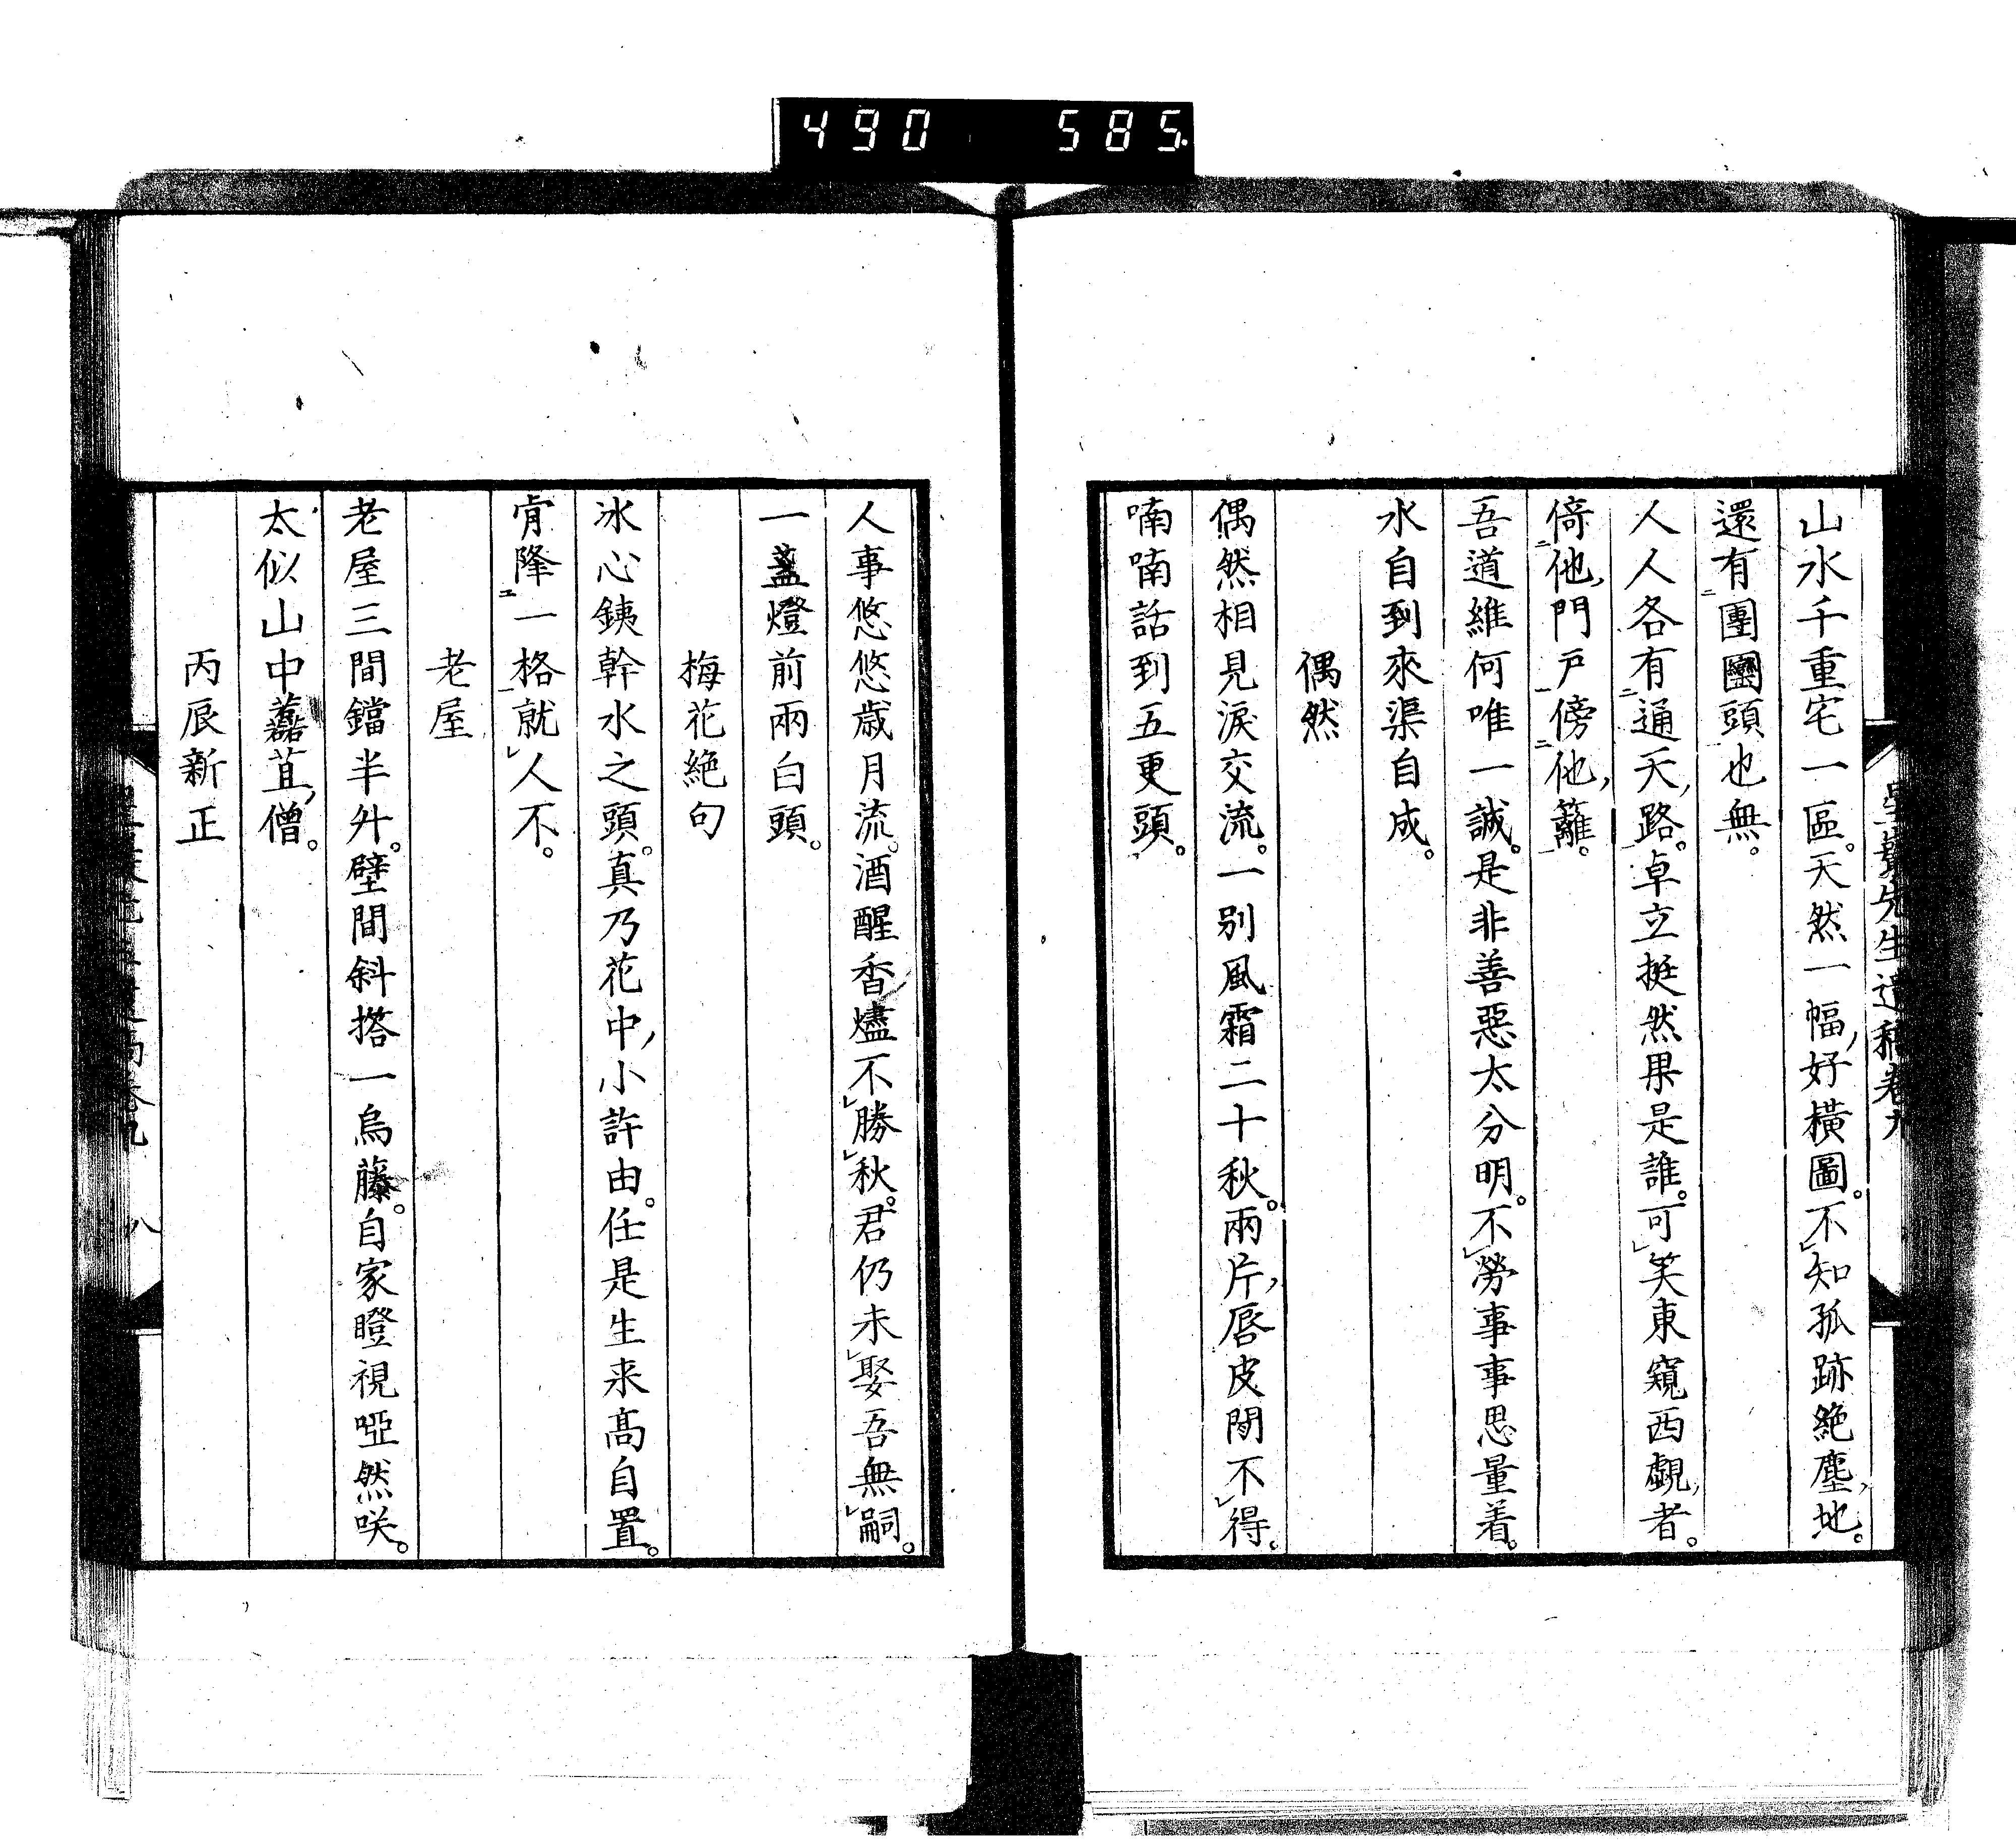 490 585
先生遺稿卷九
山水千重宅一區。天然一幅好橫圖。不知孤跡絶塵地。
還有團圞頭也無。
人人各有通天路。卓立挺然果是誰。可笑東窺西覷者。
倚他門戸傍他籬。
吾道維何唯一誠。是非善惡太分明。不勞事事思量着。
水自到來渠自成。
偶然
偶然相見淚交流。一別風霜二十秋。兩片唇皮閉不得。
喃喃話到五更頭。
人事悠悠歳月流。酒醒香燼不勝秋。君仍未娶吾無嗣。
一盞燈前兩白頭。
梅花絶句
冰心銕幹水之頭。真乃花中小許由。任是生来高自置。
肯降一格就人不。
老屋
老屋三間鐺半外。壁間斜搭一烏藤。自家瞪視啞然咲。
太似山中藞苴僧。
丙辰新正
八